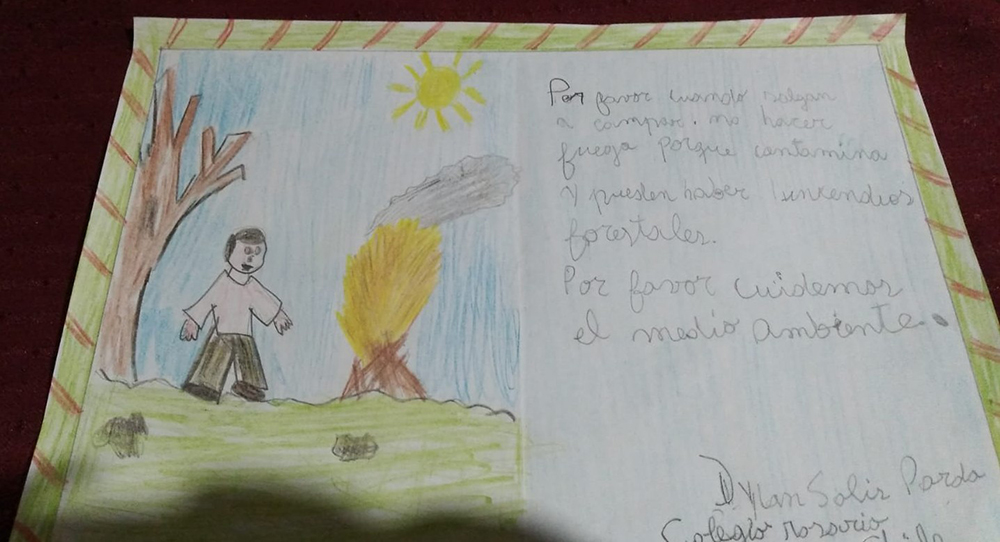 Por favor cuando salgan
a campar. no hacer
fuego porque contamina
y pueden haber incendios
forestales.
Por favor cuidemos
el medio ambiente.
Dylan Solis Pardo
Colegio rosario
Chile